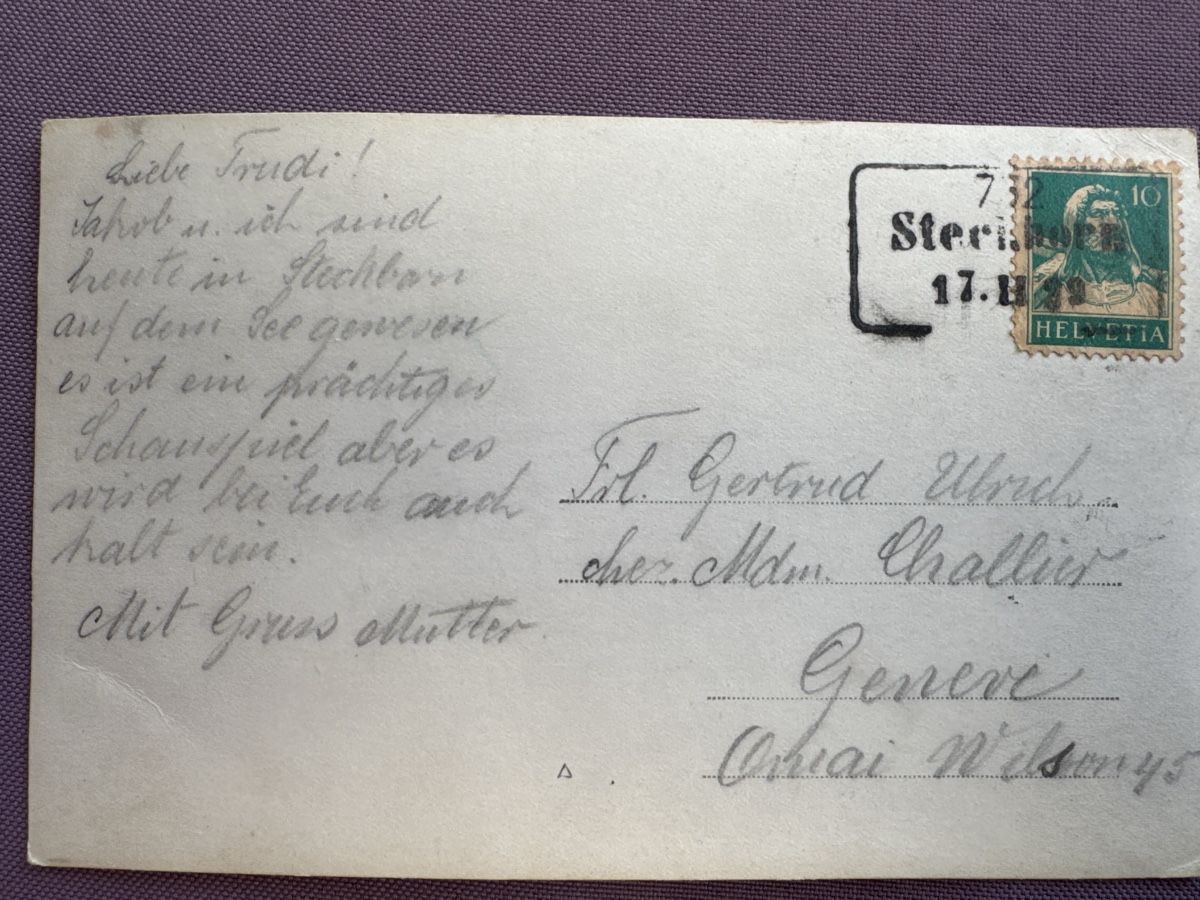 Liebe Trudi!
Jakob u. ich sind
heute in Steckborn
auf dem See gewesen
es ist ein prächtiges
Schauspiel aber es
wird bei Euch auch
kalt sein.
Mit Gruss Mutter
732
Steckborn
17. II 29
10
HELVETIA
Frl. Gertrud
chez. Mdm. Challier
Geneve
Wilson 45